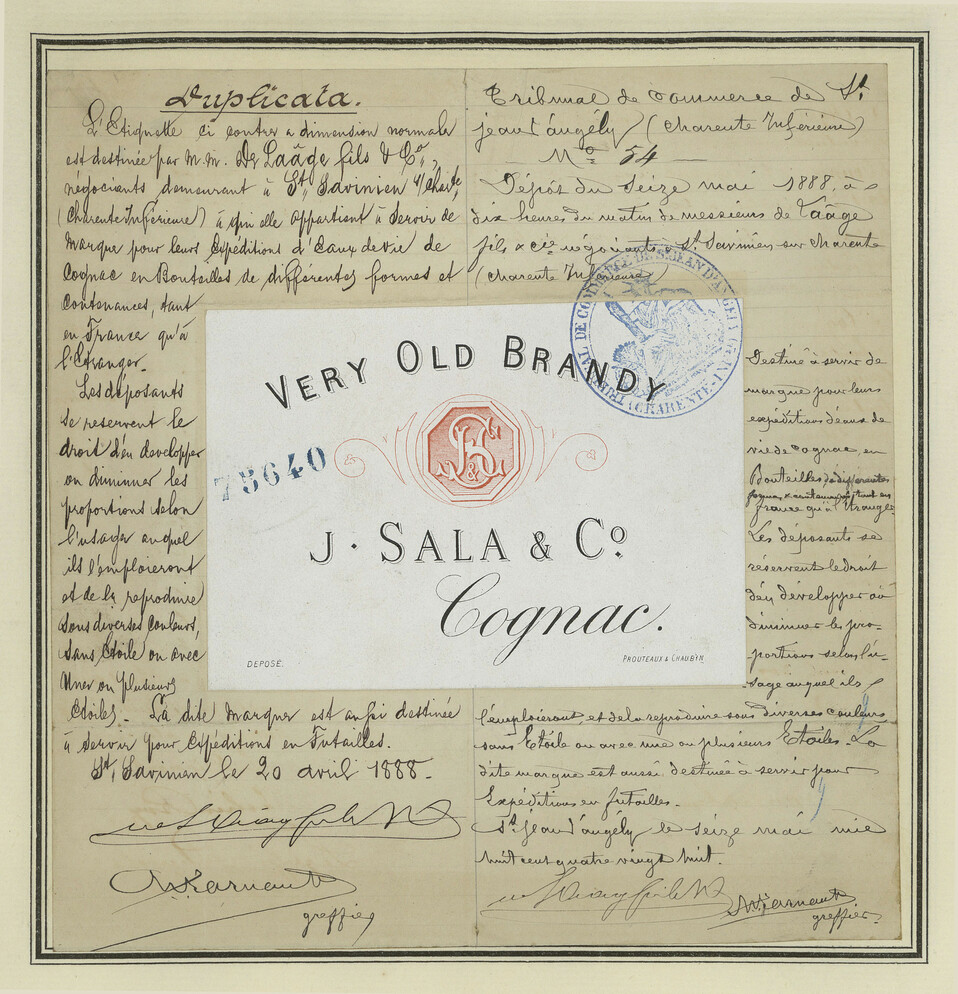 Duplicata.
L'Etiquette ci contre a dimension normale
est destinée par M.M. De Laâge fils & Co,
négociants demeurant à St Savinien s/ Charte
(Charente Inférieure) à qui elle appartient à servir de
marque pour leurs Expéditions d'Eaux de vie de
Cognac en Bouteilles de différentes formes et
contenances, tant
en France qu'à
l'Etranger.
Les déposants
se reservent le
droit d'en developper
ou diminuer les
proportions selon
l'usage auquel
ils l'emploieront
et de la reproduire
sous diverses couleurs,
sans Etoile ou avec
Une ou plusieurs
Etoiles. La dite Marque est aussi destinée
à servir pour Expéditions en Futailles.
St, Savinien le 20 avril 1888.
greffier
Tribunal de Commerce de St
jean d'angély (Charente Inférieure)
No 54
Dépôt du Seize mai 1888, à
dix heures du matin de messieurs de Laâge
fils & cie négociants à St Savinien sur charente
(Charente Inférieure)
Destiné à servir de
marque pour leurs
expéditions d'eaux de
vie de Cognac en
Bouteilles de différentes
formes & contenances, tant en
france qu'à l'Etranger
Les déposants se
réservent le droit
d'en développer ou
diminuer les pro-
portions selon l'u-
sage auquel ils
l'emploieront, et de la reproduire sous diverses couleurs
sans Etoile ou avec une ou plusieurs Etoiles. La
dite marque est aussi destinée à servir pour
Expéditions en futailles.
St Jean d'angély le seize mai mil
huit cent quatre vingt huit.
greffier
TRIBUNAL DE COMMERCE DE ST JEAN D'ANGELY
(CHARENTE-INF)
VERY OLD BRANDY
75640
S & Co
J. SALA & Co.
Cognac.
DEPOSE.
PROUTEAUX & CHAUBIN